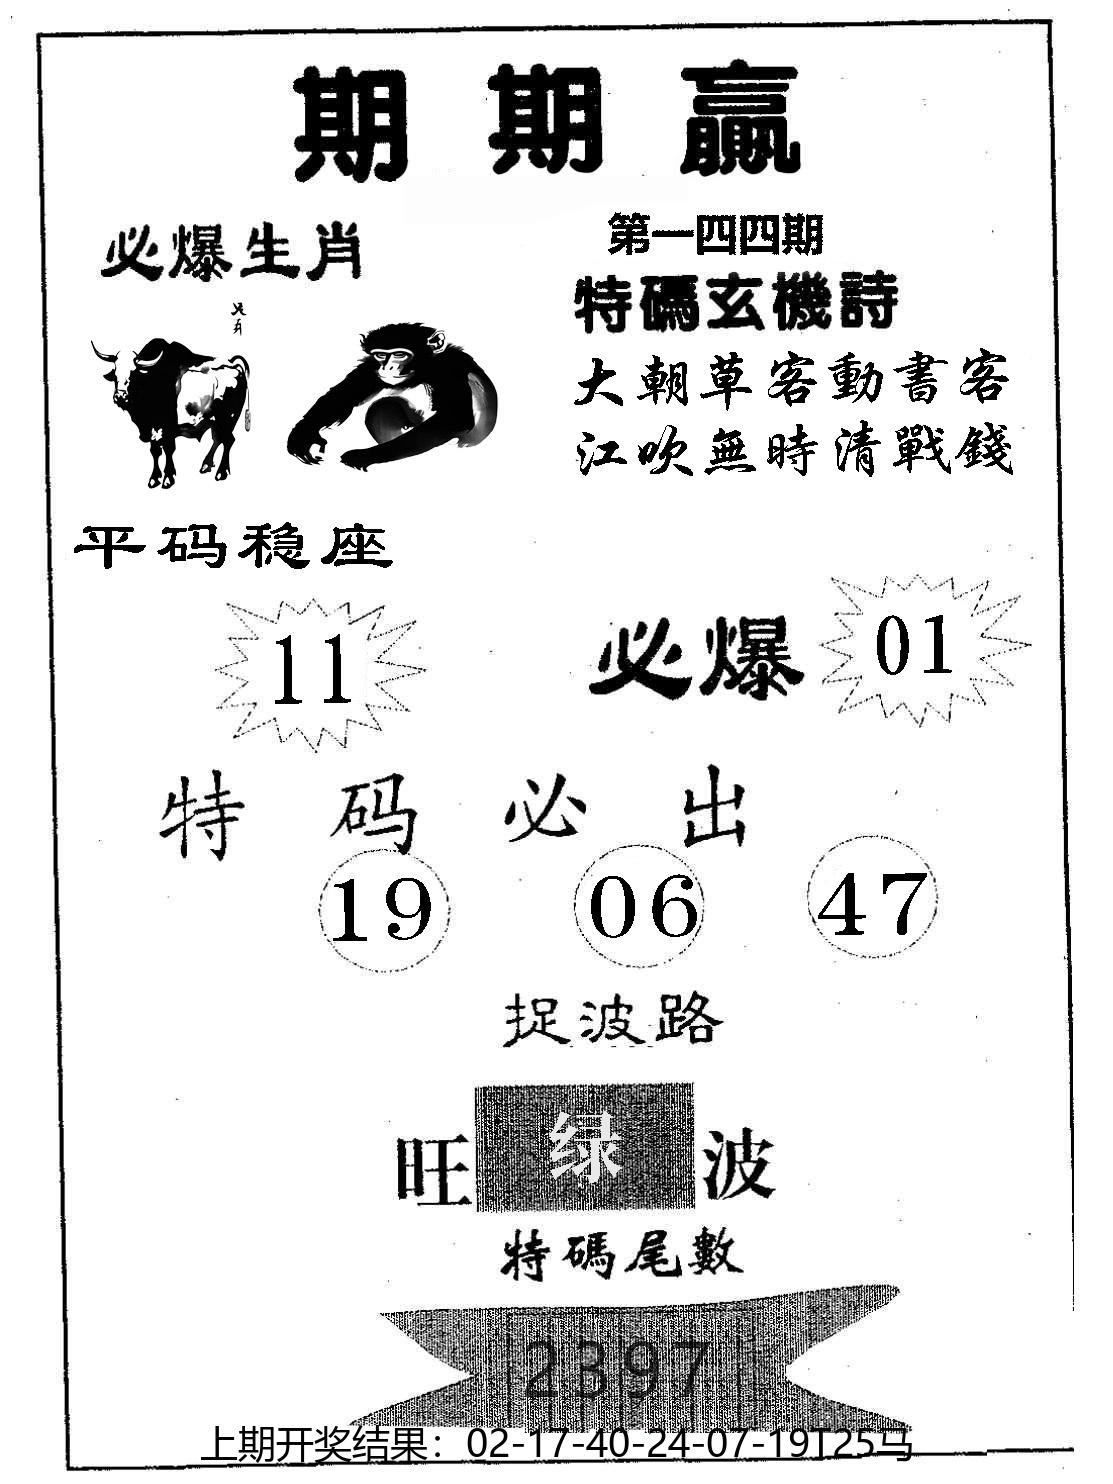 期期赢
必爆生肖
第一四四期
特碼玄機詩
大朝草客動書客
江吹無時清戰錢
平码稳座
11
必爆
01
特码必出
19 06 47
捉波路
旺 绿 波
特碼尾數
2397
上期开奖结果：02-17-40-24-07-19T25马